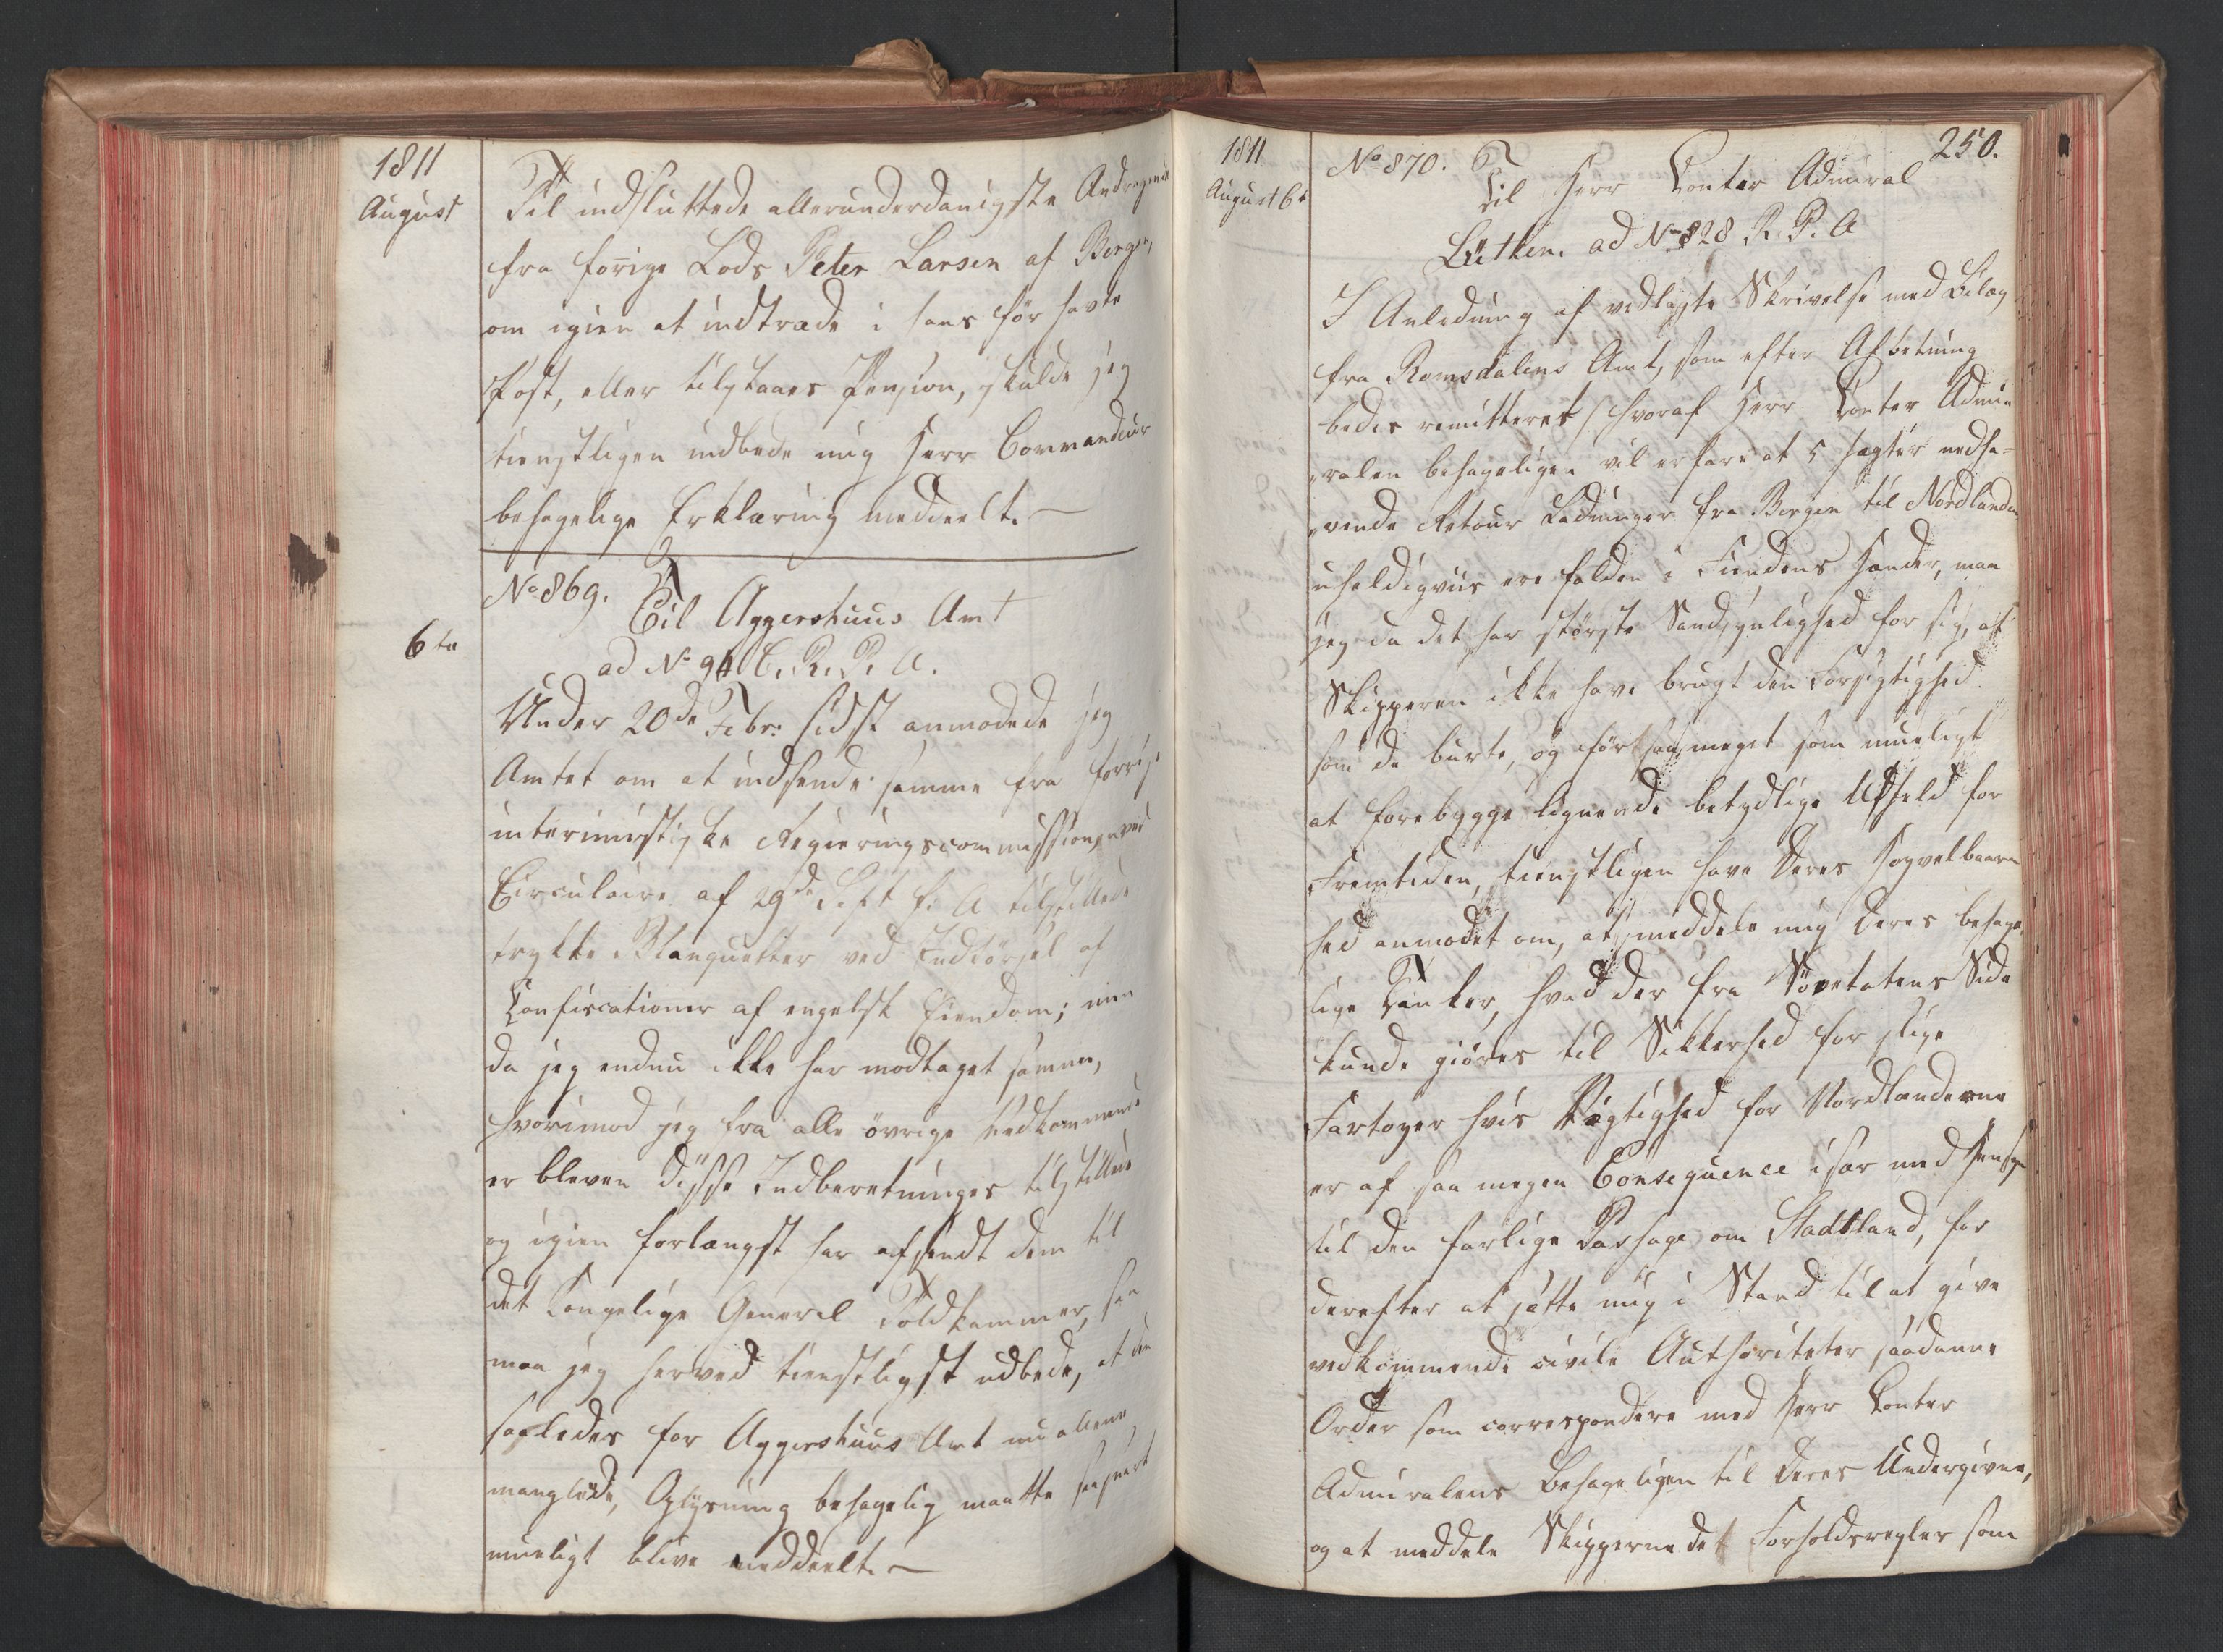 1811
August
Til indsluttede allerunderdanigste Andragende
fra forige Lods Peter Larsen af Bergen,
om igien at indtræde i hans før havte
Post, eller tilstaaes Pension, skulde jeg
tienstligen indbede mig Herr Commandeur
behagelige Erklæring meddeelt.
No 869.
6te
Til Aggershuus Amt
ad No 94 C. R. P. A.
Under 20de Febr: sidst anmodede jeg
Amtet om at indsende samme fra forrige
interimistiske Regieringscommission ved
Circulaire af 29de Sept f. A tilstillede
trykte Blanquetter ved Indførsel af
Confiscationer af engelsk Eiendom; men
da jeg endnu ikke har modtaget samme,
hvorimod jeg fra alle øvrige Vedkommende
er bleven disse Indberetninger tilstillede
og igien forlængst har afsendt dem til
det Kongelige General Toldkammer, saa
maa jeg herved tienstligst udbede, at den
saaledes for Aggershuus Amt nu allene
manglede, Oplysning behagelig maatte snarest
mueligt blive meddeelt.
1811
August 6te
250.
No 870.
Til Herr Conter Admiral
Lütken. ad No 828 R. P. A
I Anledning af vedlagte Skrivelse med Bilag
fra Romsdalens Amt, som efter Afbetning
bedes remitteret, hvoraf Herr Conter Admi-
ralen behageligen vil erfare at 5 Jægter medha-
vende Retour Ladninger fra Bergen til Nordlanden
uheldigviis ere falden i Fiendens Hænder, maa
jeg da det har største Sandsynlighed for sig, at
Skipperen ikke have brugt den Forsigtighed
som de burte, og først saa meget som mueligt
at forebygge lignende betydlige Uheld for
Fremtiden, tienstligen have Deres Høyvelbaaren
hed anmodet om, at meddele mig Deres behage
lige Tanker, hvad der fra Søeetatens Side
kunde giøres til Sikkerhed for slige
Fartøyer hvis Vigtighed for Nordlanderne
er af saa megen Consequence især med Hensyn
til den farlige Passage om Stadtland, for
derefter at sætte mig i Stand til at give
vedkommende civile Authoriteter saadanne
Order som correspondere med Herr Conter
Admiralens Behageligen til Deres Undergivne,
og at meddele Skipperne det Forholdsregler som